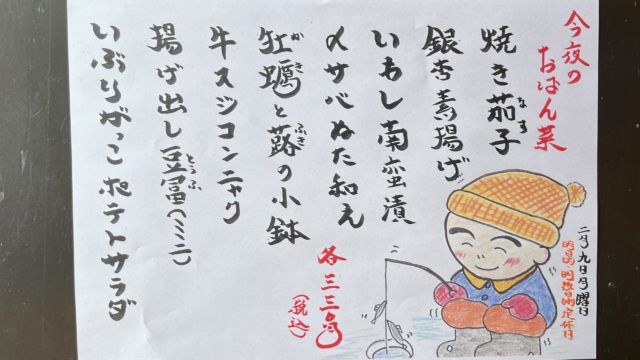 今夜の
おばん菜
焼き茄子
なす
銀杏素揚げ
いわし南蛮漬
〆サバぬた和え
牡蠣と蕗の小鉢
かき
ふき
牛スジコンニャク
揚げ出し豆富(ミニ)
とうふ
いぶりがっこポテトサラダ
各三三〇円
(税込)
二月九日月曜日
明日(火)明後日(水)定休日